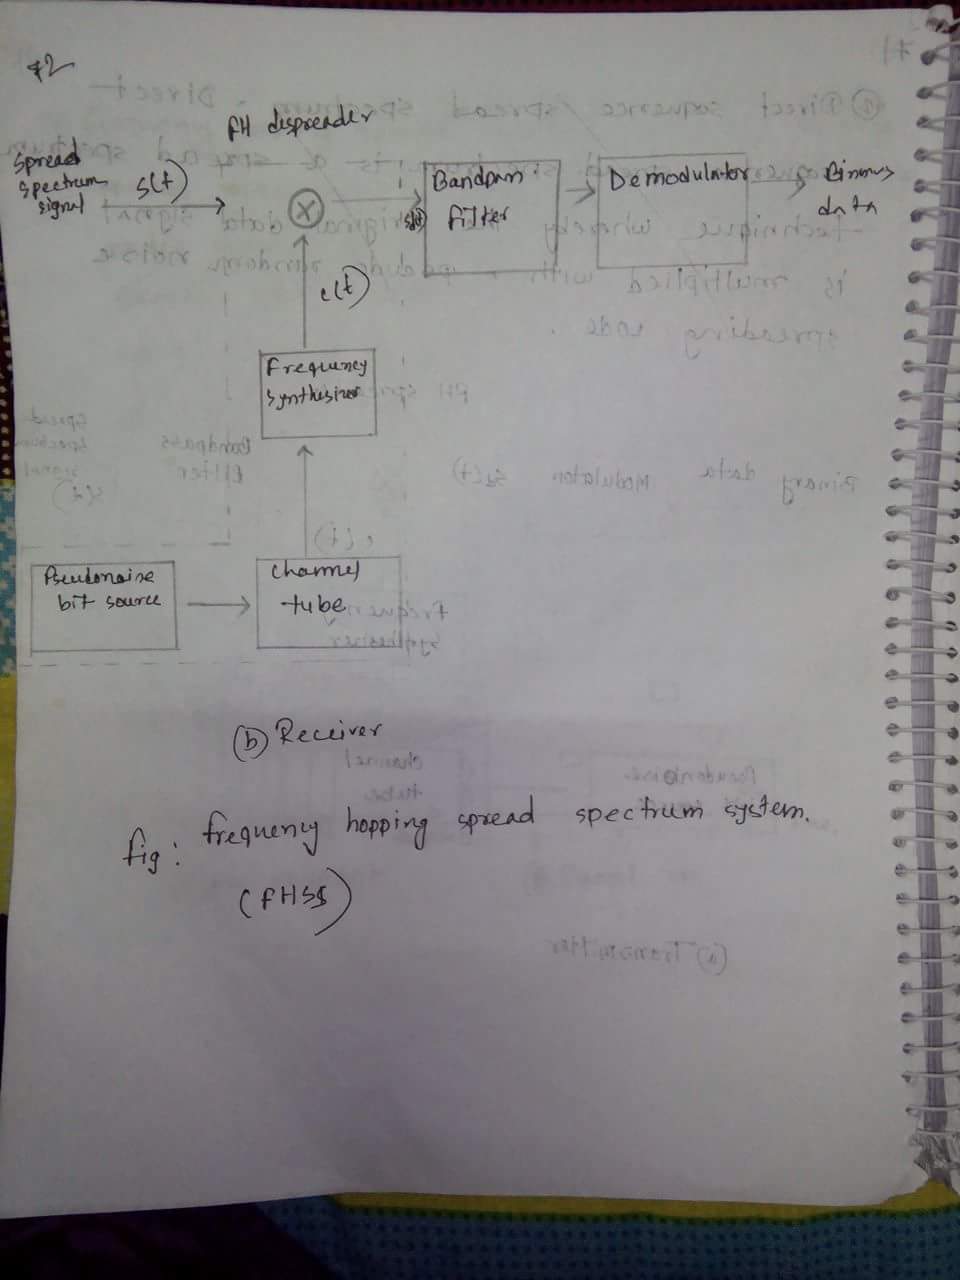 72
FH dispreader
Spread
spectrum
signal
s(t)
Bandpass
filter
Demodulator
Binary
data
c(t)
Frequency
synthesizer
Pseudonoise
bit source
channel
tube
(b) Receiver
fig: frequency hopping spread spectrum system.
(FHSS)